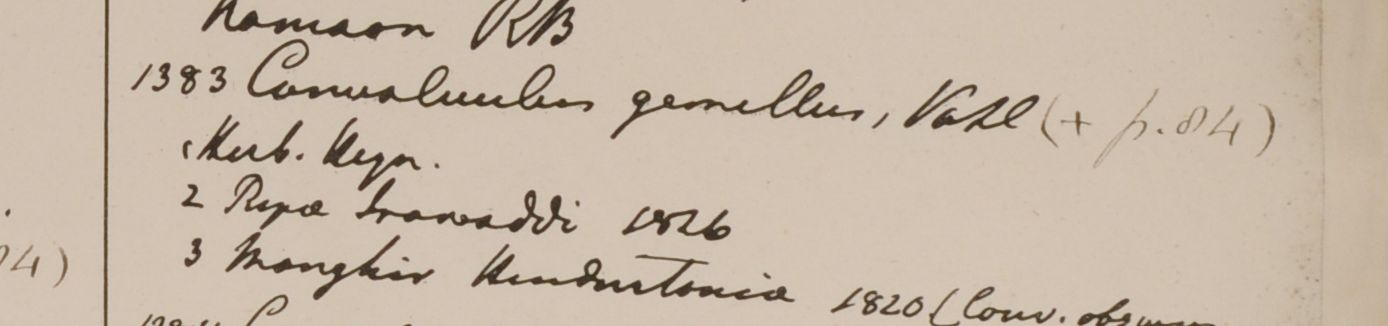 Kamaon RB
1383 Convolvulus gemellus, Vahl (+ p. 84)
1 Herb. Heyn.
2 Ripæ Irawaddi 1826
84)
3 Monghir Hindustania 1820 (Conv.